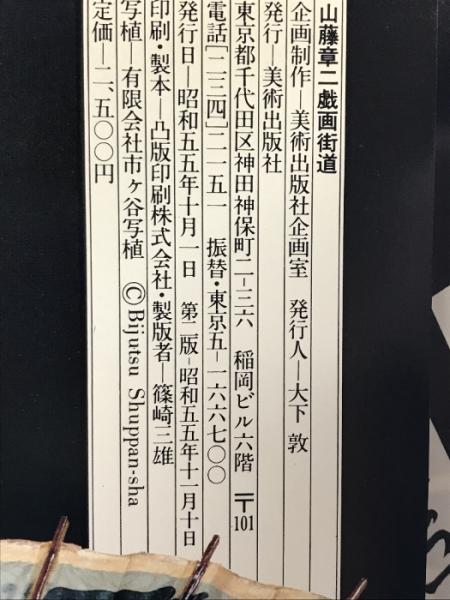 山藤章二戯画街道
企画制作―美術出版社企画室　発行人―大下 敦
発行―美術出版社
東京都千代田区神田神保町二-三六　稲岡ビル六階　〒101
電話[二三四]二一五一　振替・東京五-一六六七〇〇
発行日―昭和五五年十月一日　第二版-昭和五五年十一月十日
印刷・製本―凸版印刷株式会社・製版者―篠崎三雄
写植―有限会社市ヶ谷写植　©Bijutsu Shuppan-sha
定価―二、五〇〇円